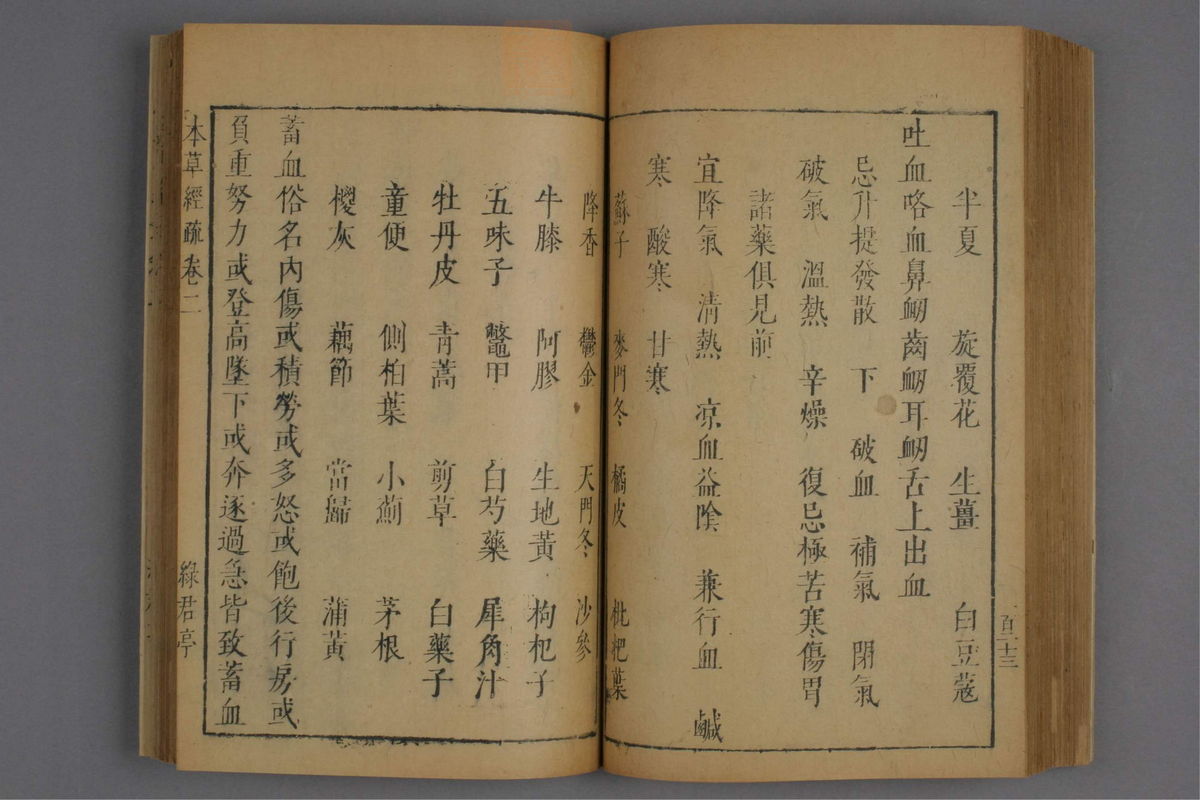 半夏 旋覆花 生薑 白豆蔻
吐血咯血鼻衂齒衂耳衂舌上出血
忌升提發散 下 破血 補氣 閉氣
破氣 溫熱 辛燥 復忌極苦寒傷胃
諸藥俱見前
宜降氣 清熱 凉血益陰 兼行血 鹹
寒 酸寒 甘寒
蘇子 麥門冬 橘皮 枇杷葉
降香 鬱金 天門冬 沙參
牛膝 阿膠 生地黃 枸杞子
五味子 鼈甲 白芍藥 犀角汁
牡丹皮 青蒿 剪草 白藥子
童便 側柏葉 小薊 茅根
椶灰 藕節 當歸 蒲黃
蓄血俗名內傷或積勞或多怒或飽後行房或
負重努力或登高墜下或奔逐過急皆致蓄血
本草經疏卷二 綠君亭
百二十三